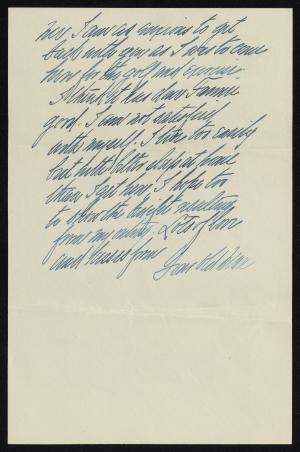 her I am as anxious to get
back with you as I was to come
here for the golf and exercise.
I think it has done Fannie
good. I am not satisfied
with myself. I tire too easily
but with better sleep at home
than I get here, I hope too
to show the benefit resulting
from my outing. Lots of love
and kisses from
Your old